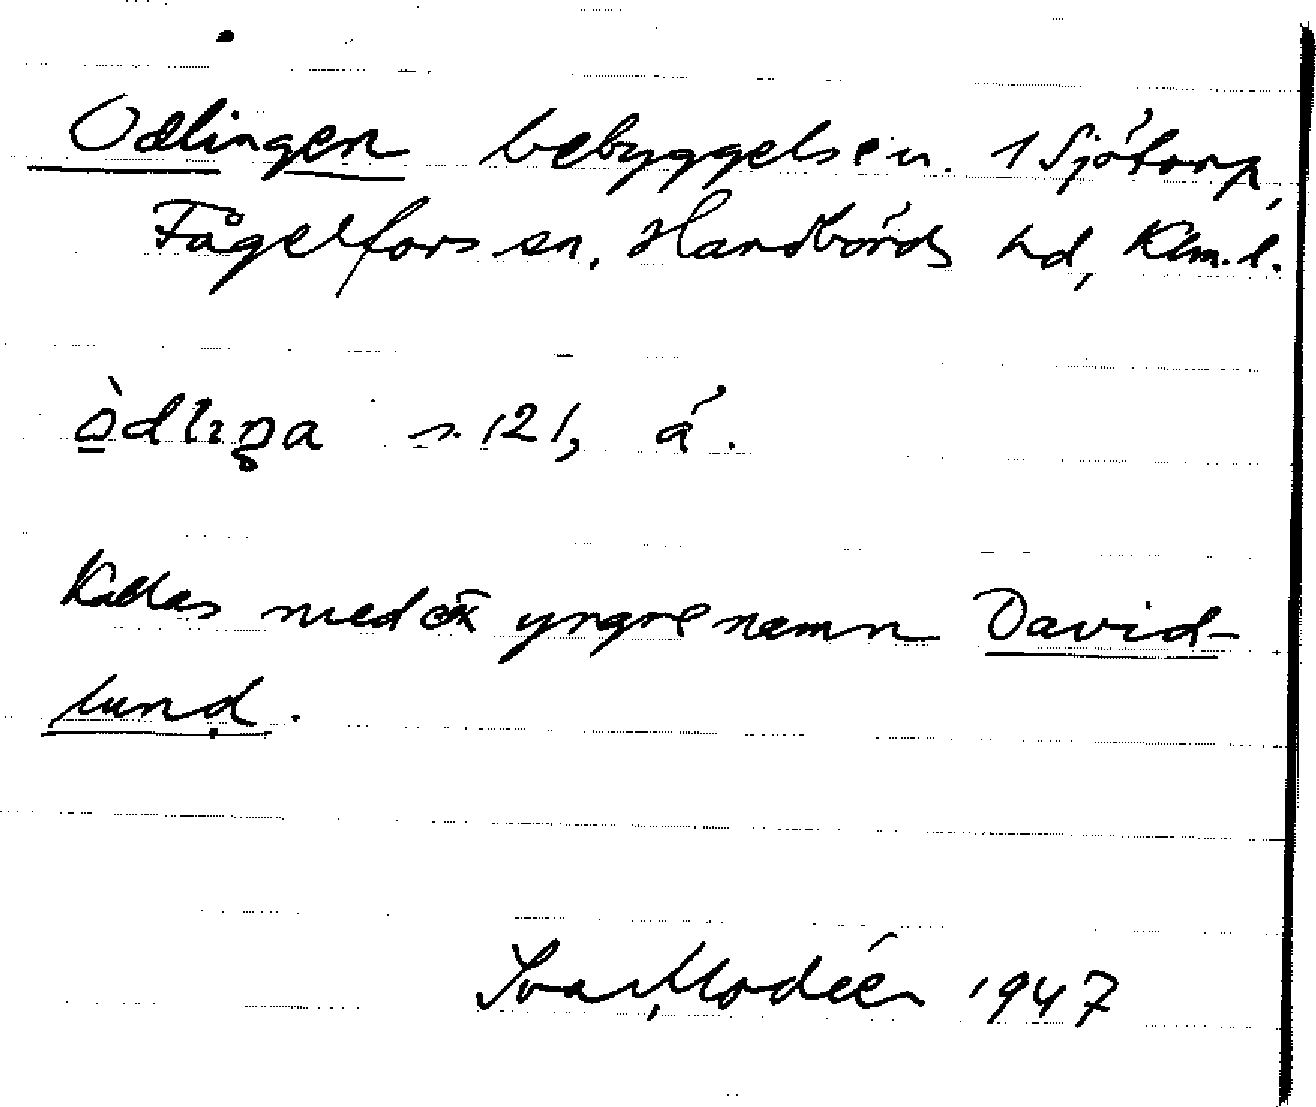 Odlingen bebyggelsen. 1 Sjötorp,
Fågelfors sn, Handbörds hd, Klm. l.
òdlıŋa s. 121, á.
Kallas med ett yngre namn David-
lund.
Ivar Modéer 1947